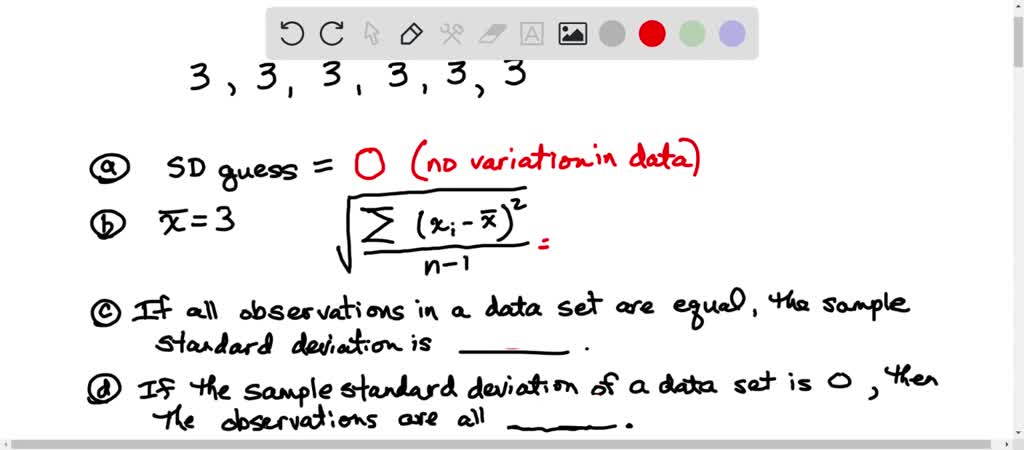 3, 3, 3, 3, 3, 3
ⓐ SD guess = 0 (no variation in data)
ⓑ x̄ = 3 √(∑(xᵢ - x̄)² / n-1) =
ⓒ If all observations in a data set are equal, the sample
standard deviation is ______.
ⓓ If the sample standard deviation of a data set is 0, then
the observations are all ______.